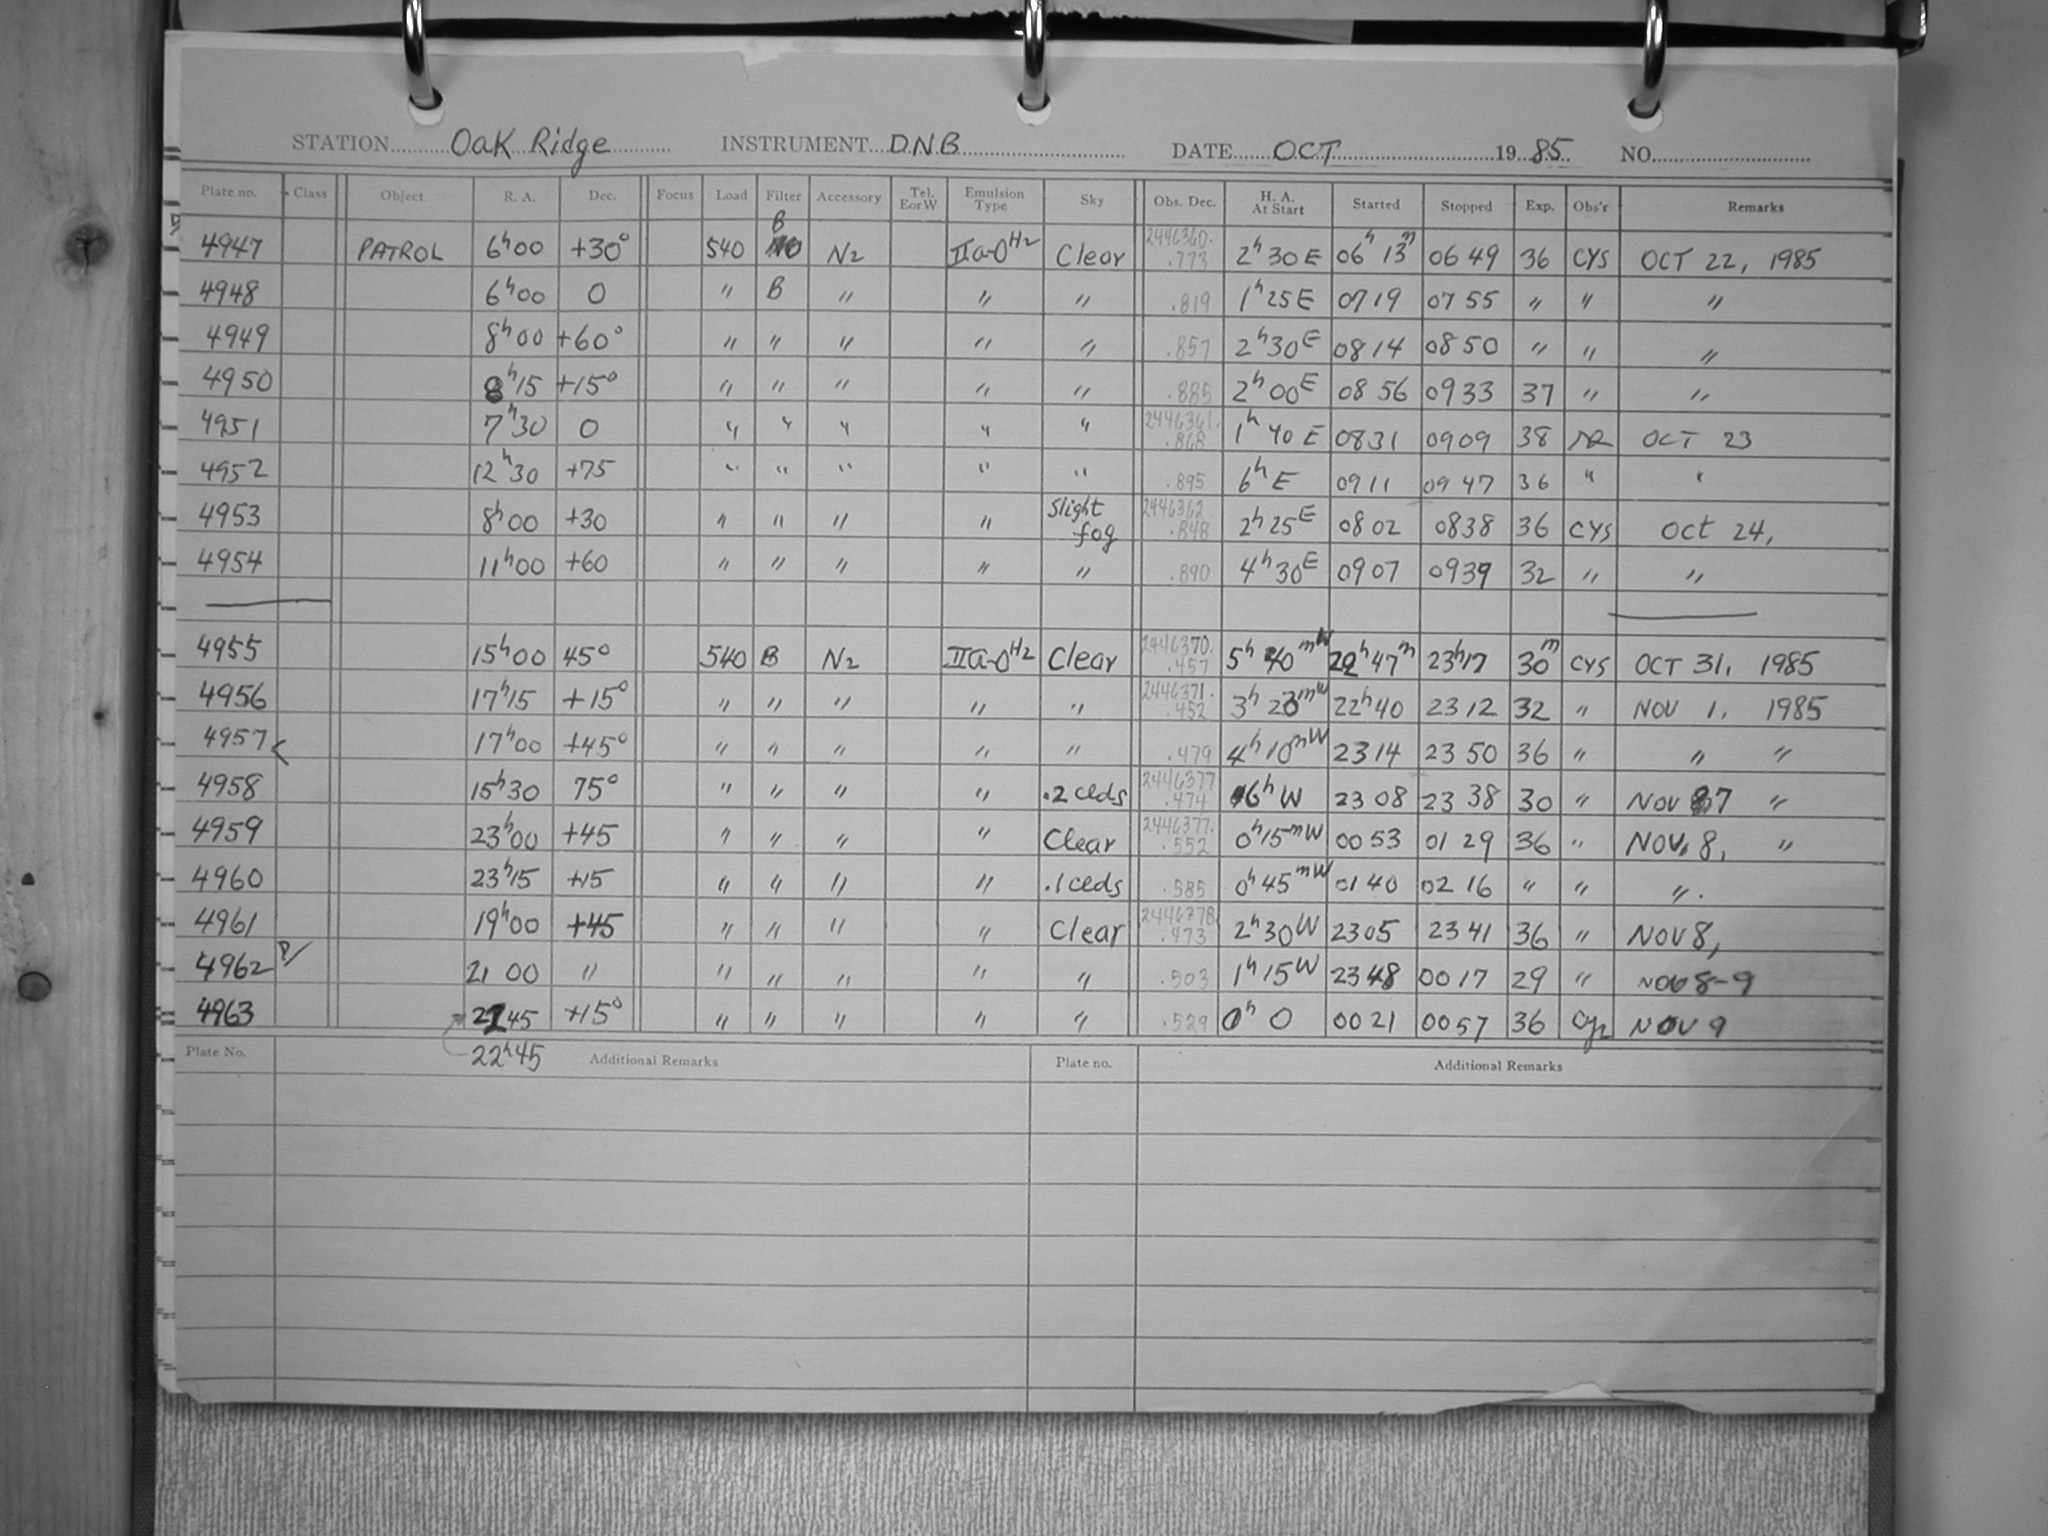 STATION Oak Ridge INSTRUMENT D.N.B DATE OCT 19 85 NO.
Plate no. Class Object R. A. Dec. Focus Load Filter Accessory Tel. E or W Emulsion Type Sky Obs. Dec. H. A. At Start Started Stopped Exp. Obs'r Remarks
4947 PATROL 6h00 +30° 540 B N2 IIa-O H2 Clear 2446360. .773 2h30E 06h13m 0649 36 CYS OCT 22, 1985
4948 6h00 0 " B " " " .819 1h25E 0719 0755 " " "
4949 8h00 +60° " " " " " .857 2h30E 0814 0850 " " "
4950 8h15 +15° " " " " " .885 2h00E 0856 0933 37 " "
4951 7h30 0 " " " " " 2446361. .868 1h40E 0831 0909 38 OCT 23
4952 12h30 +75 " " " " " .895 6hE 0911 0947 36 " "
4953 8h00 +30 " " " " Slight fog 2446362. .848 2h25E 0802 0838 36 CYS Oct 24,
4954 11h00 +60 " " " " " .890 4h30E 0907 0939 32 " "
4955 15h00 45° 540 B N2 IIa-O H2 Clear 2446370. .457 5h40mW 22h47m 23h17 30m CYS OCT 31, 1985
4956 17h15 +15° " " " " " 2446371. .452 3h20mW 22h40 2312 32 " NOV 1. 1985
4957 < 17h00 +45° " " " " " .479 4h10mW 2314 2350 36 " " "
4958 15h30 75° " " " " .2 clds 2446377 .474 6hW 2308 2338 30 " NOV 7 "
4959 23h00 +45 " " " " Clear 2446377. .552 0h15mW 0053 0129 36 " NOV. 8, "
4960 23h15 +15 " " " " .1 clds .585 0h45mW 0140 0216 " " ".
4961 19h00 +45 " " " " Clear 2446378 .473 2h30W 2305 2341 36 " NOV 8,
4962 P/ 21 00 " " " " " " .503 1h15W 2348 0017 29 " NOV 8-9
4963 2145 +15° " " " " " .529 0h 0 0021 0057 36 CYS NOV 9
22h45
Plate No. Additional Remarks Plate no. Additional Remarks